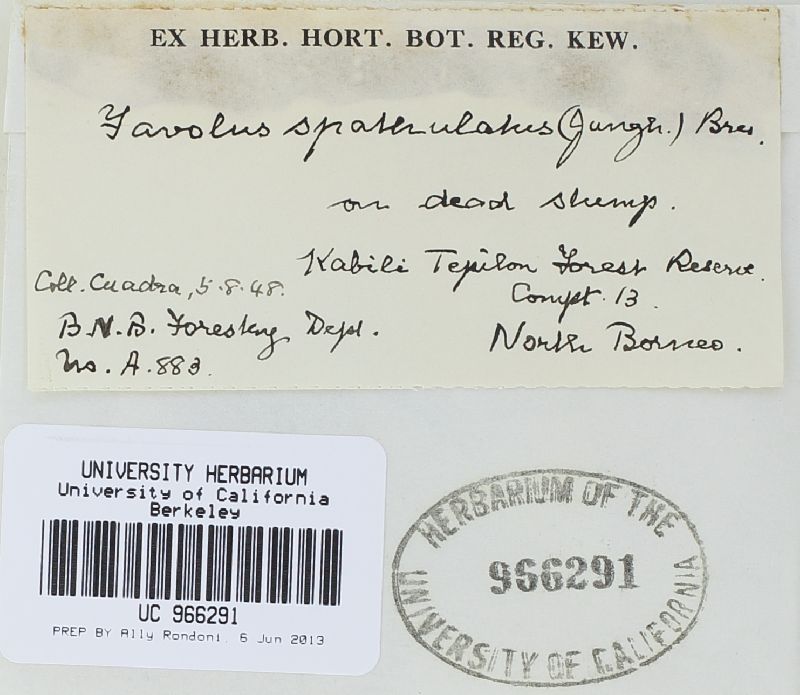 EX HERB. HORT. BOT. REG. KEW.
Favolus spathulatus (Jungh.) Bres.
on dead stump.
Kabili Sepilok Forest Reserve.
Compt. 13.
Coll. Cuadra, 5.8.48.
B.N.B. Forestry Dept.
North Borneo.
No. A.883.
UNIVERSITY HERBARIUM
University of California
Berkeley
UC 966291
PREP BY Ally Rondoni, 6 Jun 2013
HERBARIUM OF THE
966291
UNIVERSITY OF CALIFORNIA